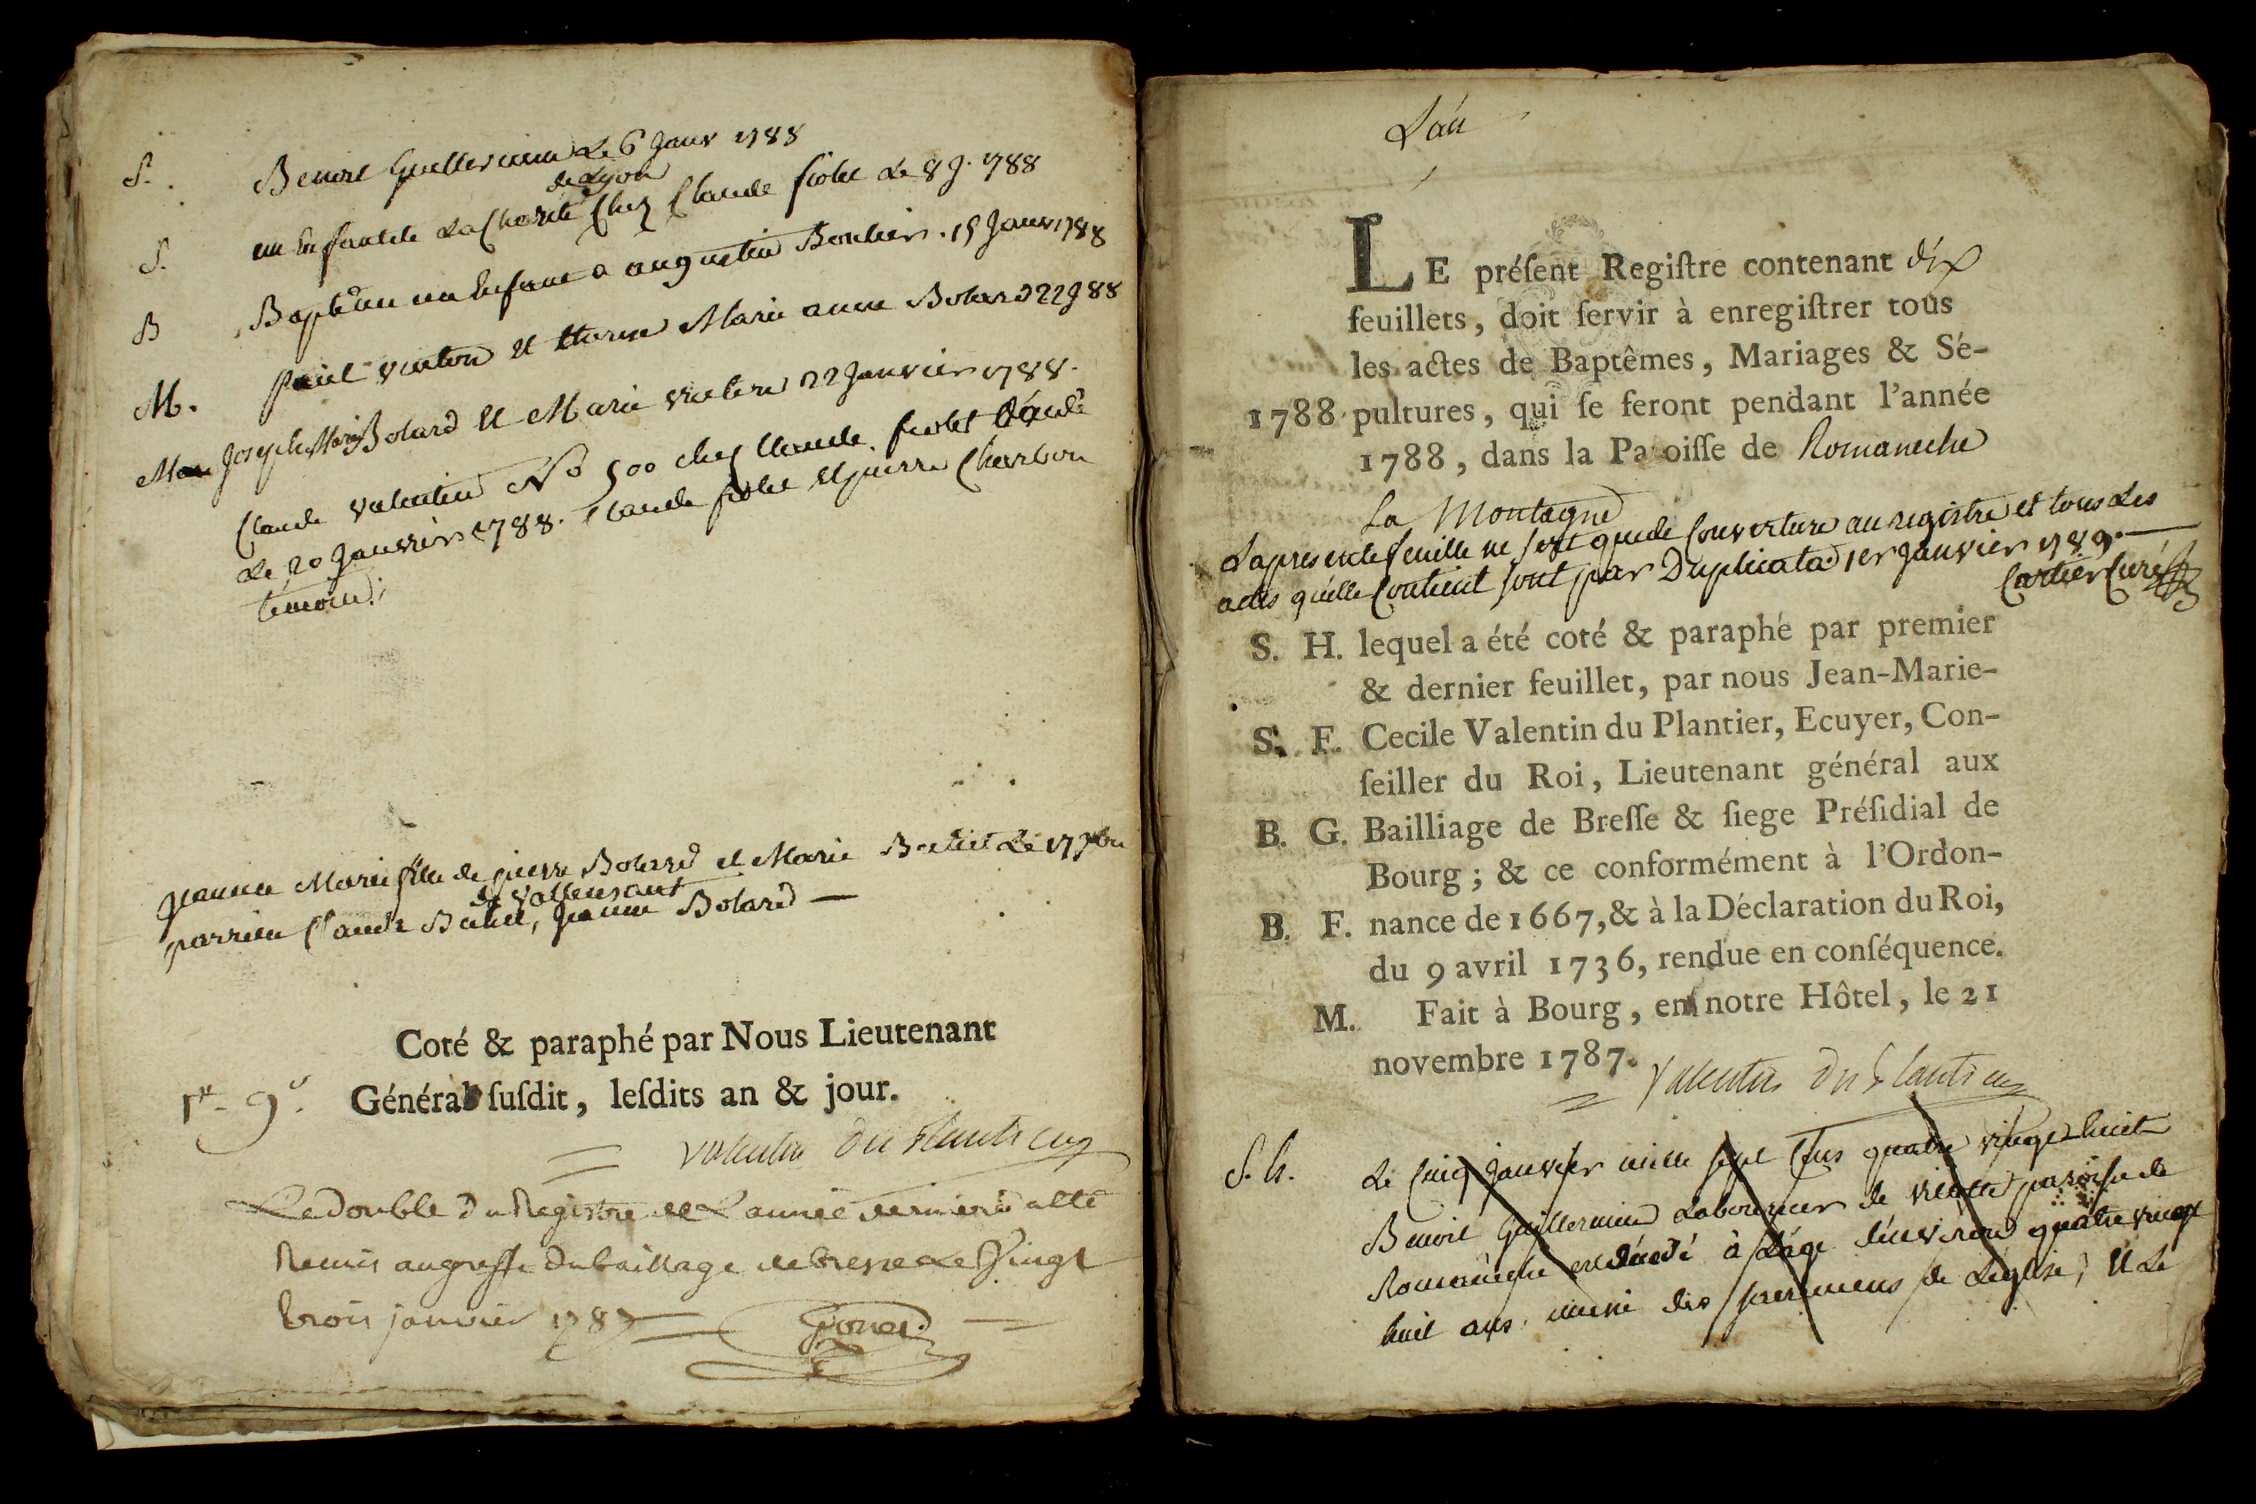 S. Benoit Guillermin Le 6 Janv 1788
de Lyon
S. un Enfant de La Charité Chez Claude fiolet Le 8 J. 1788
B Baptême un Enfant a augustin Bouchier . 15 Janv 1788
M. paul et Marie anne Bolard 22 J 88
Joseph Marie Bolard et Marie 22 Janvier 1788.
Claude valentin No 500 chez Claude fiolet
Le 20 Janvier 1788. Claude fiolet et pierre Charbon
témoin.
Jeanne Marie fille de pierre Bolard et Marie Le 17
parrein Claude Jeanne Bolard
Coté & paraphé par Nous Lieutenant
Général suſdit, leſdits an & jour.
valentin du plantier
Le double du Registre de L'année derniere a ette
Remis au greffe du bailliage de bresse Le Vingt
trois janvier 1787
L'an
LE préſent Regiſtre contenant dix
feuillets, doit ſervir à enregiſtrer tous
les actes de Baptêmes, Mariages & Sé-
1788 pultures, qui ſe feront pendant l'année
1788, dans la Paroiſſe de Romaneche
La Montagne
La presente feuille ne sert que de Couverture au registre et tous Les
actes qu'elle Contient sont par Duplicata 1er Janvier 1789.
Cartier Curé
S. H. lequel a été coté & paraphé par premier
& dernier feuillet, par nous Jean-Marie-
S. F. Cecile Valentin du Plantier, Ecuyer, Con-
ſeiller du Roi, Lieutenant général aux
B. G. Bailliage de Breſſe & ſiege Préſidial de
Bourg; & ce conformément à l'Ordon-
B. F. nance de 1667, & à la Déclaration du Roi,
du 9 avril 1736, rendue en conſéquence.
M. Fait à Bourg, en notre Hôtel, le 21
novembre 1787.
Valentin du plantier
S. h. Le Cinq Janvier mille sept Cens quatre vingt huit
Benoit Guillermin Laboureur de paroisse de
Romanêche est décédé à L'âge d'environ quatre vingt
huit ans muni des sacremens de L'église, et Le